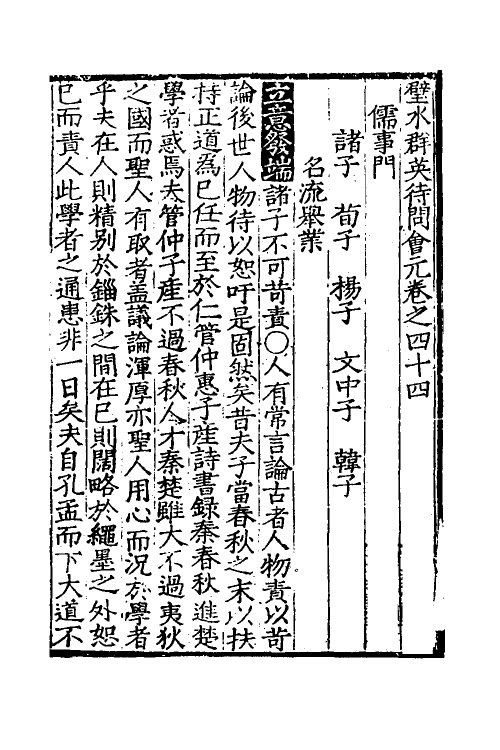 璧水群英待問會元卷之四十四
儒事門
諸子 荀子 揚子 文中子 韓子
名流舉業
立意發端 諸子不可苛責〇人有常言論古者人物責以苛
論後世人物待以恕吁是固然矣昔夫子當春秋之末以扶
持正道為己任而至於仁管仲惠子產詩書録秦春秋進楚
學者惑焉夫管仲子產不過春秋人才秦楚雖大不過夷狄
之國而聖人有取者盖議論渾厚亦聖人用心而況於學者
乎夫在人則精别於錙銖之間在已則闊略於繩墨之外恕
已而責人此學者之通患非一日矣夫自孔孟而下大道不